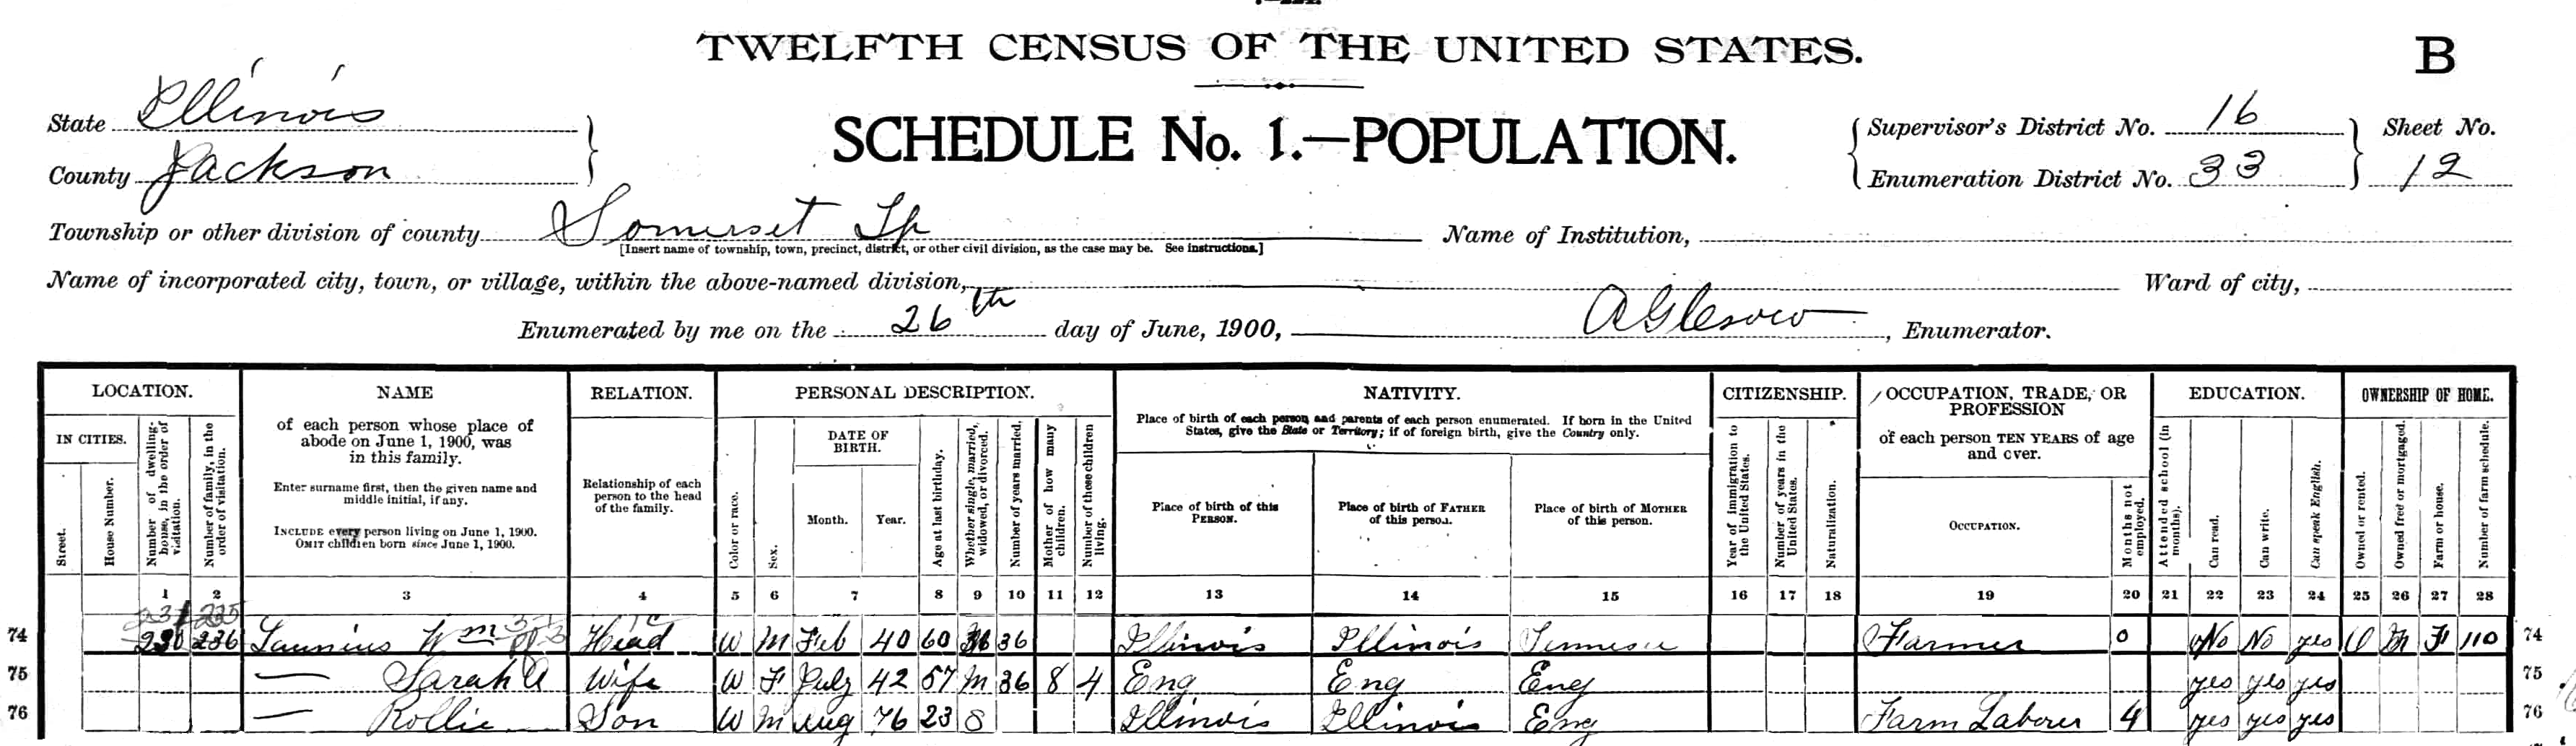 TWELFTH CENSUS OF THE UNITED STATES.
B
State Illinois
County Jackson
SCHEDULE No. 1.—POPULATION.
Supervisor's District No. 16
Enumeration District No. 33
Sheet No.
12
Township or other division of county Somerset Tp
[Insert name of township, town, precinct, district, or other civil division, as the case may be. See instructions.]
Name of Institution,
Name of incorporated city, town, or village, within the above-named division,
Ward of city,
Enumerated by me on the 26th day of June, 1900, , Enumerator.
LOCATION.
IN CITIES.
Street.
House Number.
Number of dwelling-house, in the order of visitation.
Number of family, in the order of visitation.
NAME
of each person whose place of
abode on June 1, 1900, was
in this family.
Enter surname first, then the given name and
middle initial, if any.
INCLUDE every person living on June 1, 1900.
OMIT children born since June 1, 1900.
RELATION.
Relationship of each
person to the head
of the family.
PERSONAL DESCRIPTION.
Color or race.
Sex.
DATE OF
BIRTH.
Month.
Year.
Age at last birthday.
Whether single, married, widowed, or divorced.
Number of years married.
Mother of how many children.
Number of these children living.
NATIVITY.
Place of birth of each person and parents of each person enumerated. If born in the United
States, give the State or Territory; if of foreign birth, give the Country only.
Place of birth of this
PERSON.
Place of birth of FATHER
of this person.
Place of birth of MOTHER
of this person.
CITIZENSHIP.
Year of immigration to the United States.
Number of years in the United States.
Naturalization.
OCCUPATION, TRADE, OR
PROFESSION
of each person TEN YEARS of age
and over.
OCCUPATION.
Months not employed.
EDUCATION.
Attended school (in months).
Can read.
Can write.
Can speak English.
OWNERSHIP OF HOME.
Owned or rented.
Owned free or mortgaged.
Farm or house.
Number of farm schedule.
1 2 3 4 5 6 7 8 9 10 11 12 13 14 15 16 17 18 19 20 21 22 23 24 25 26 27 28
74 236 Wm Head W M Feb 40 60 M 36 Illinois Illinois Farmer 0 No No yes O M F 110 74
75 — Sarah A Wife W F July 42 57 M 36 8 4 Eng Eng Eng yes yes yes 75
76 — Rollie Son W M Aug 76 23 S Illinois Illinois Eng Farm Laborer 4 yes yes yes 76